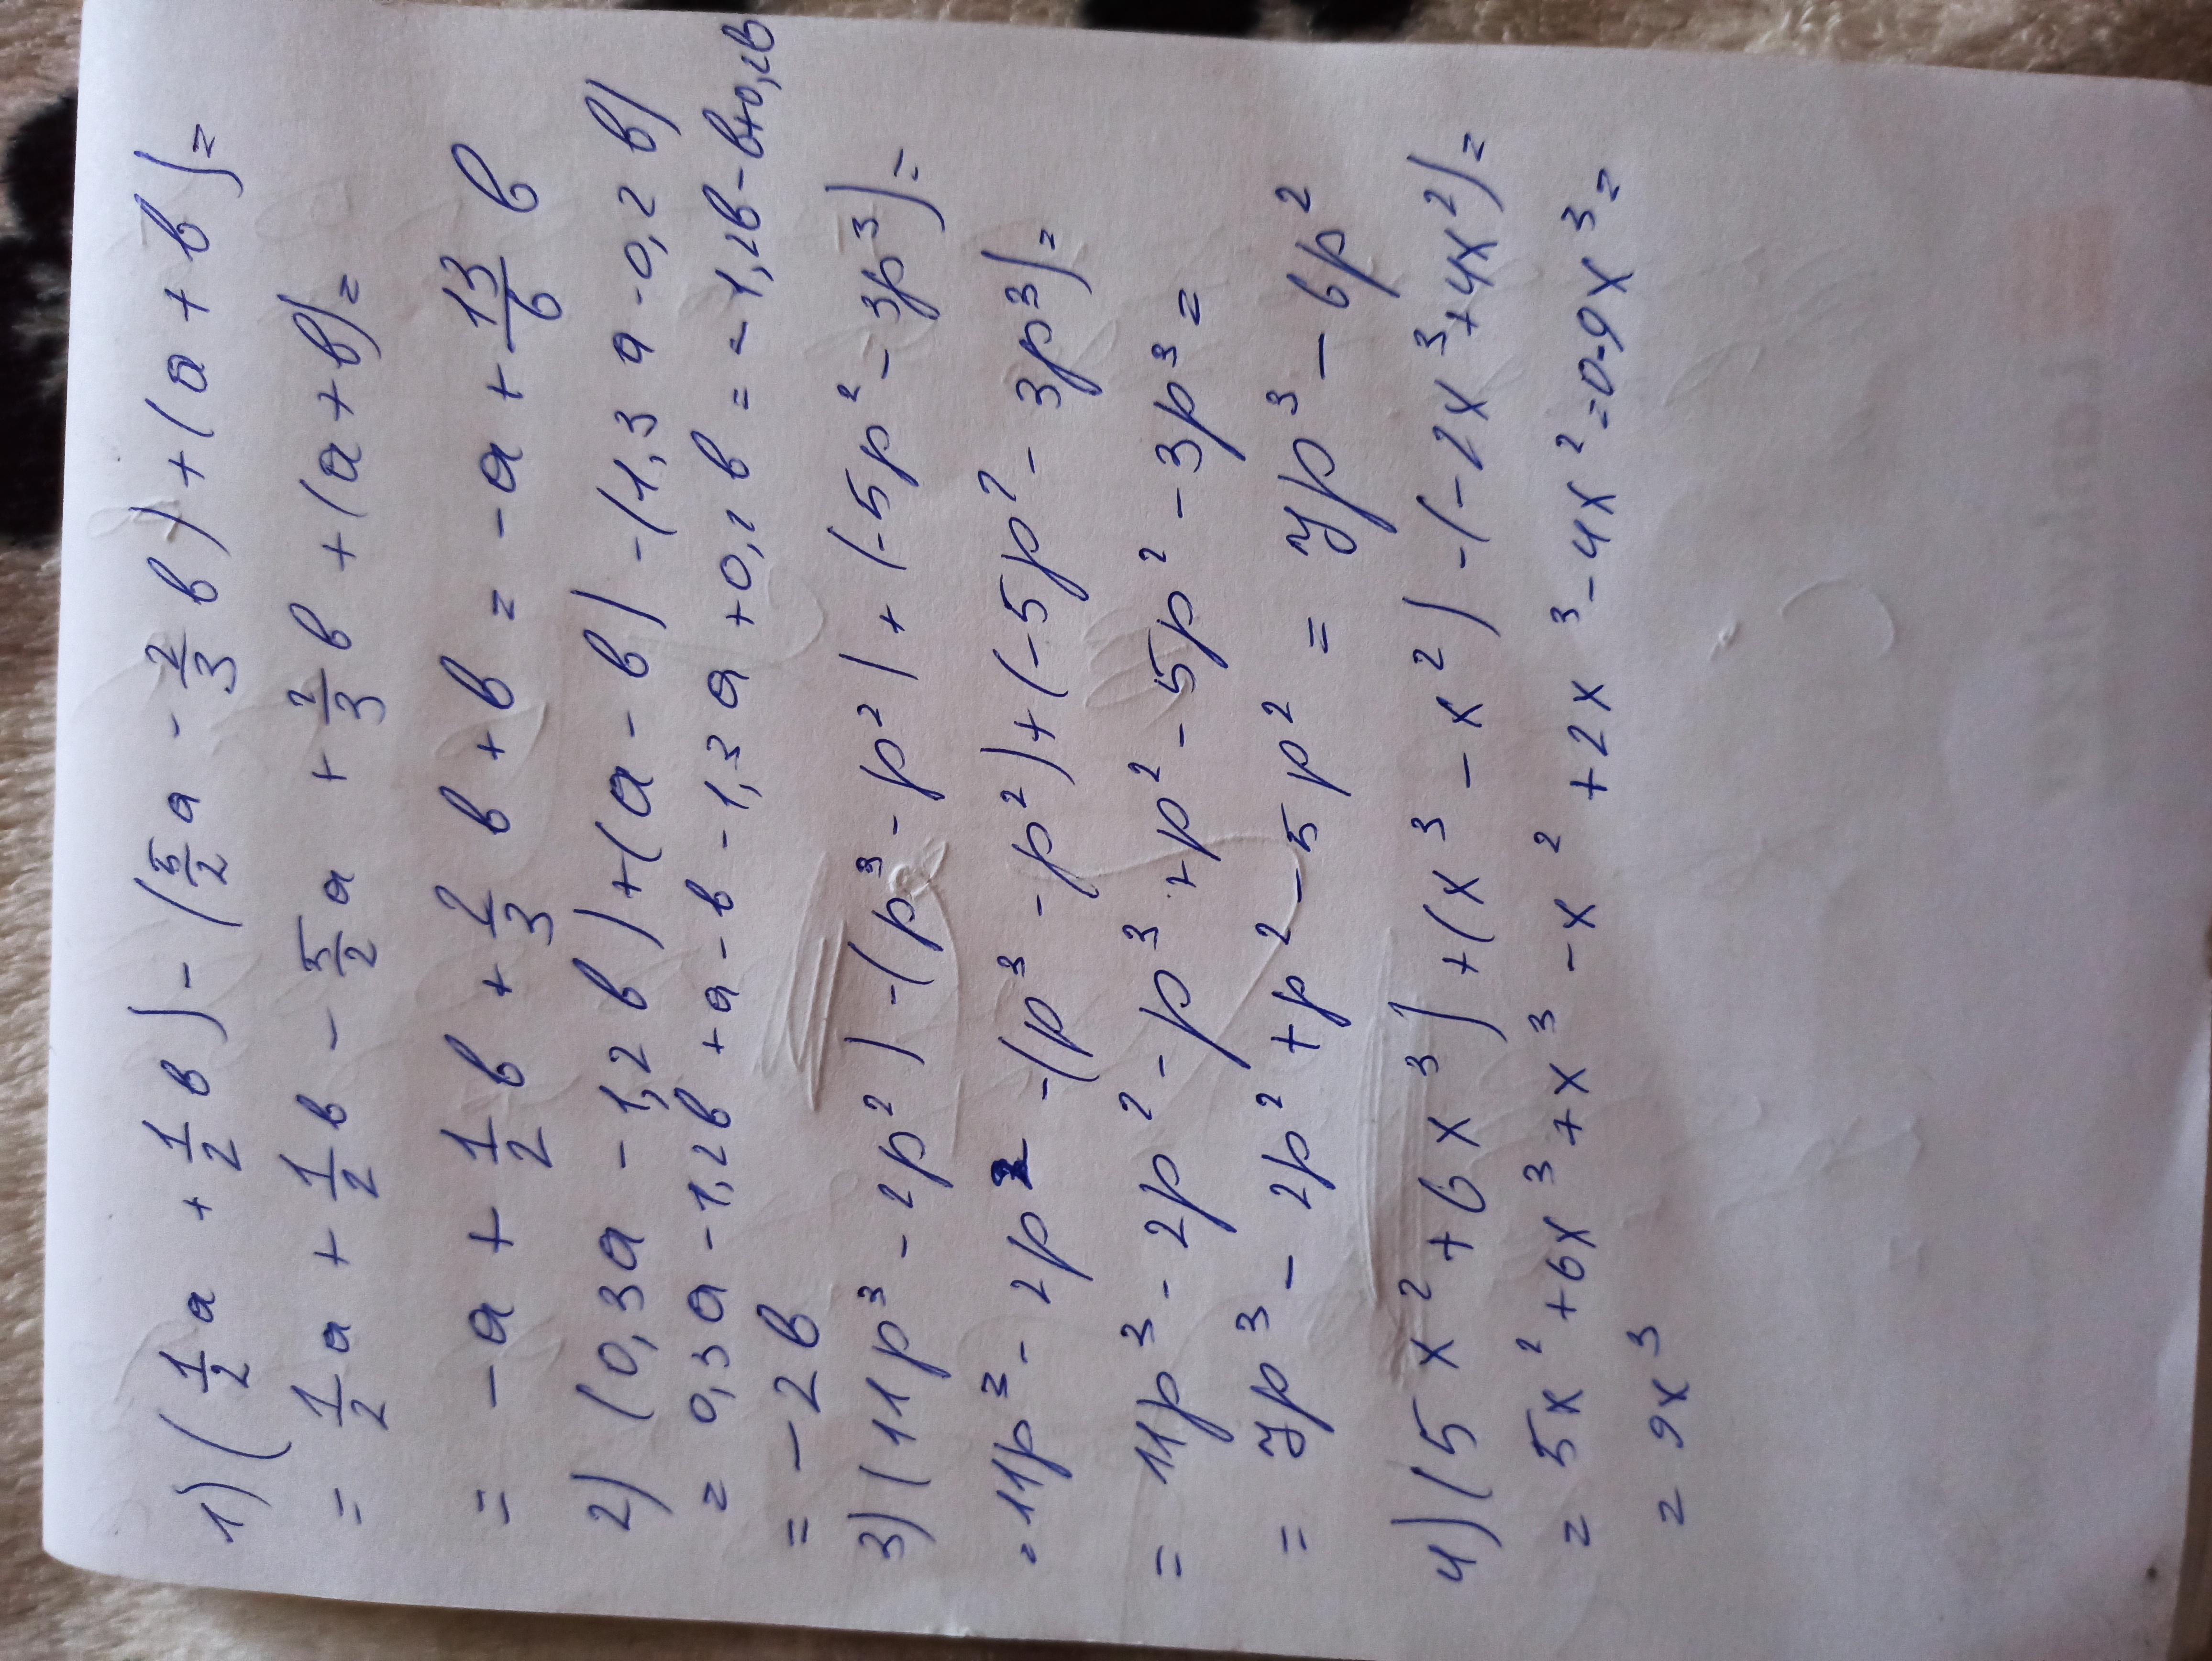 1) (1/2 a + 1/2 в) - (5/2 a - 2/3 в) + (a + в) =
= 1/2 a + 1/2 в - 5/2 a + 2/3 в + (a + в) =
= - a + 1/2 в + 2/3 в + в = - a + 13/6 в
2) (0,3a - 1,2 в) + (a - в) - (1,3 a - 0,2 в)
= 0,3a - 1,2в + a - в - 1,3 a + 0,2 в = - 1,2в - в + 0,2в
= - 2в
3) (11p³ - 2p²) - (p³ - p²) + (-5p² - 3p³) =
= 11p³ - 2p² - (p³ - p²) + (-5p² - 3p³) =
= 11p³ - 2p² - p³ + p² - 5p² - 3p³ =
= 7p³ - 2p² + p² - 5p² = 7p³ - 6p²
4) (5x² + 6x³) + (x³ - x²) - (-2x³ + 4x²) =
= 5x² + 6x³ + x³ - x² + 2x³ - 4x² = 0 - 9x³ =
= 9x³